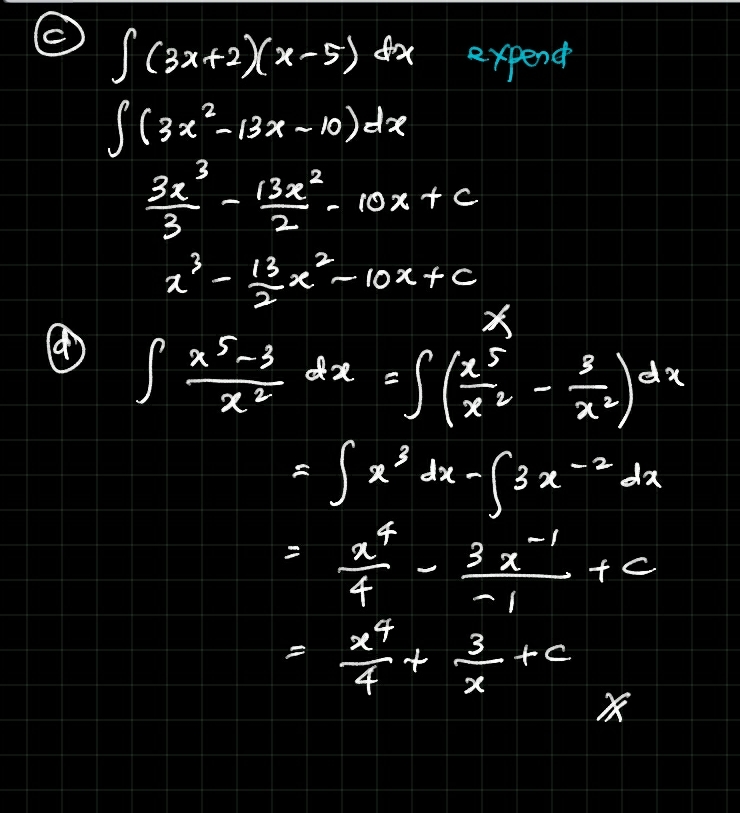 ⓒ ∫(3x+2)(x-5) dx expend
∫(3x²-13x-10)dx
3x³/3 - 13x²/2 - 10x + c
x³ - 13/2 x² - 10x + c
ⓓ ∫ x⁵-3/x² dx = ∫(x⁵/x² - 3/x²)dx
= ∫x³ dx - ∫3x⁻² dx
= x⁴/4 - 3x⁻¹/-1 + c
= x⁴/4 + 3/x + c